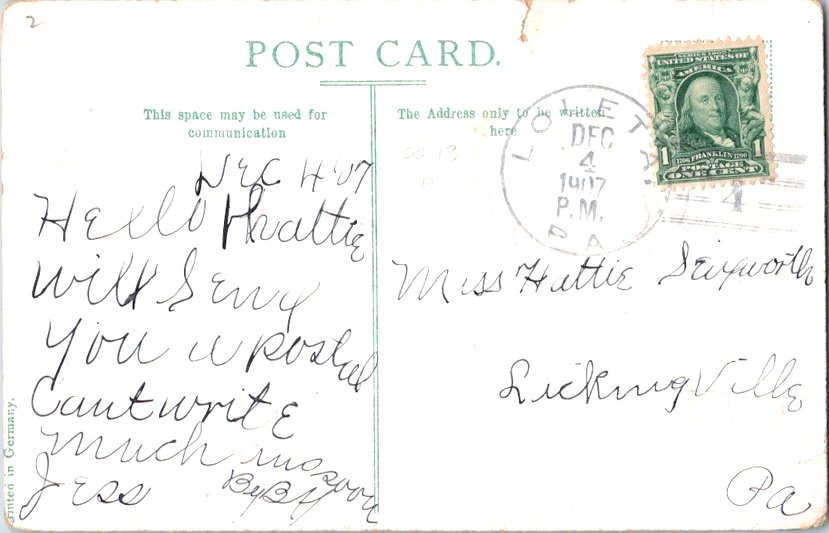 2
POST CARD.
This space may be used for
communication
The Address only to be written
here
LOLETA.
DEC
4
1907
P.M.
PA
SERIES 1902
UNITED STATES OF
AMERICA
1 1706 FRANKLIN 1790 1
POSTAGE
ONE CENT
4
Dec 4 '07
Hello Hattie
Will Send
You a postal
Cant write
much
Jess By By
Miss Hattie
Licking Ville
Pa
Printed in Germany.